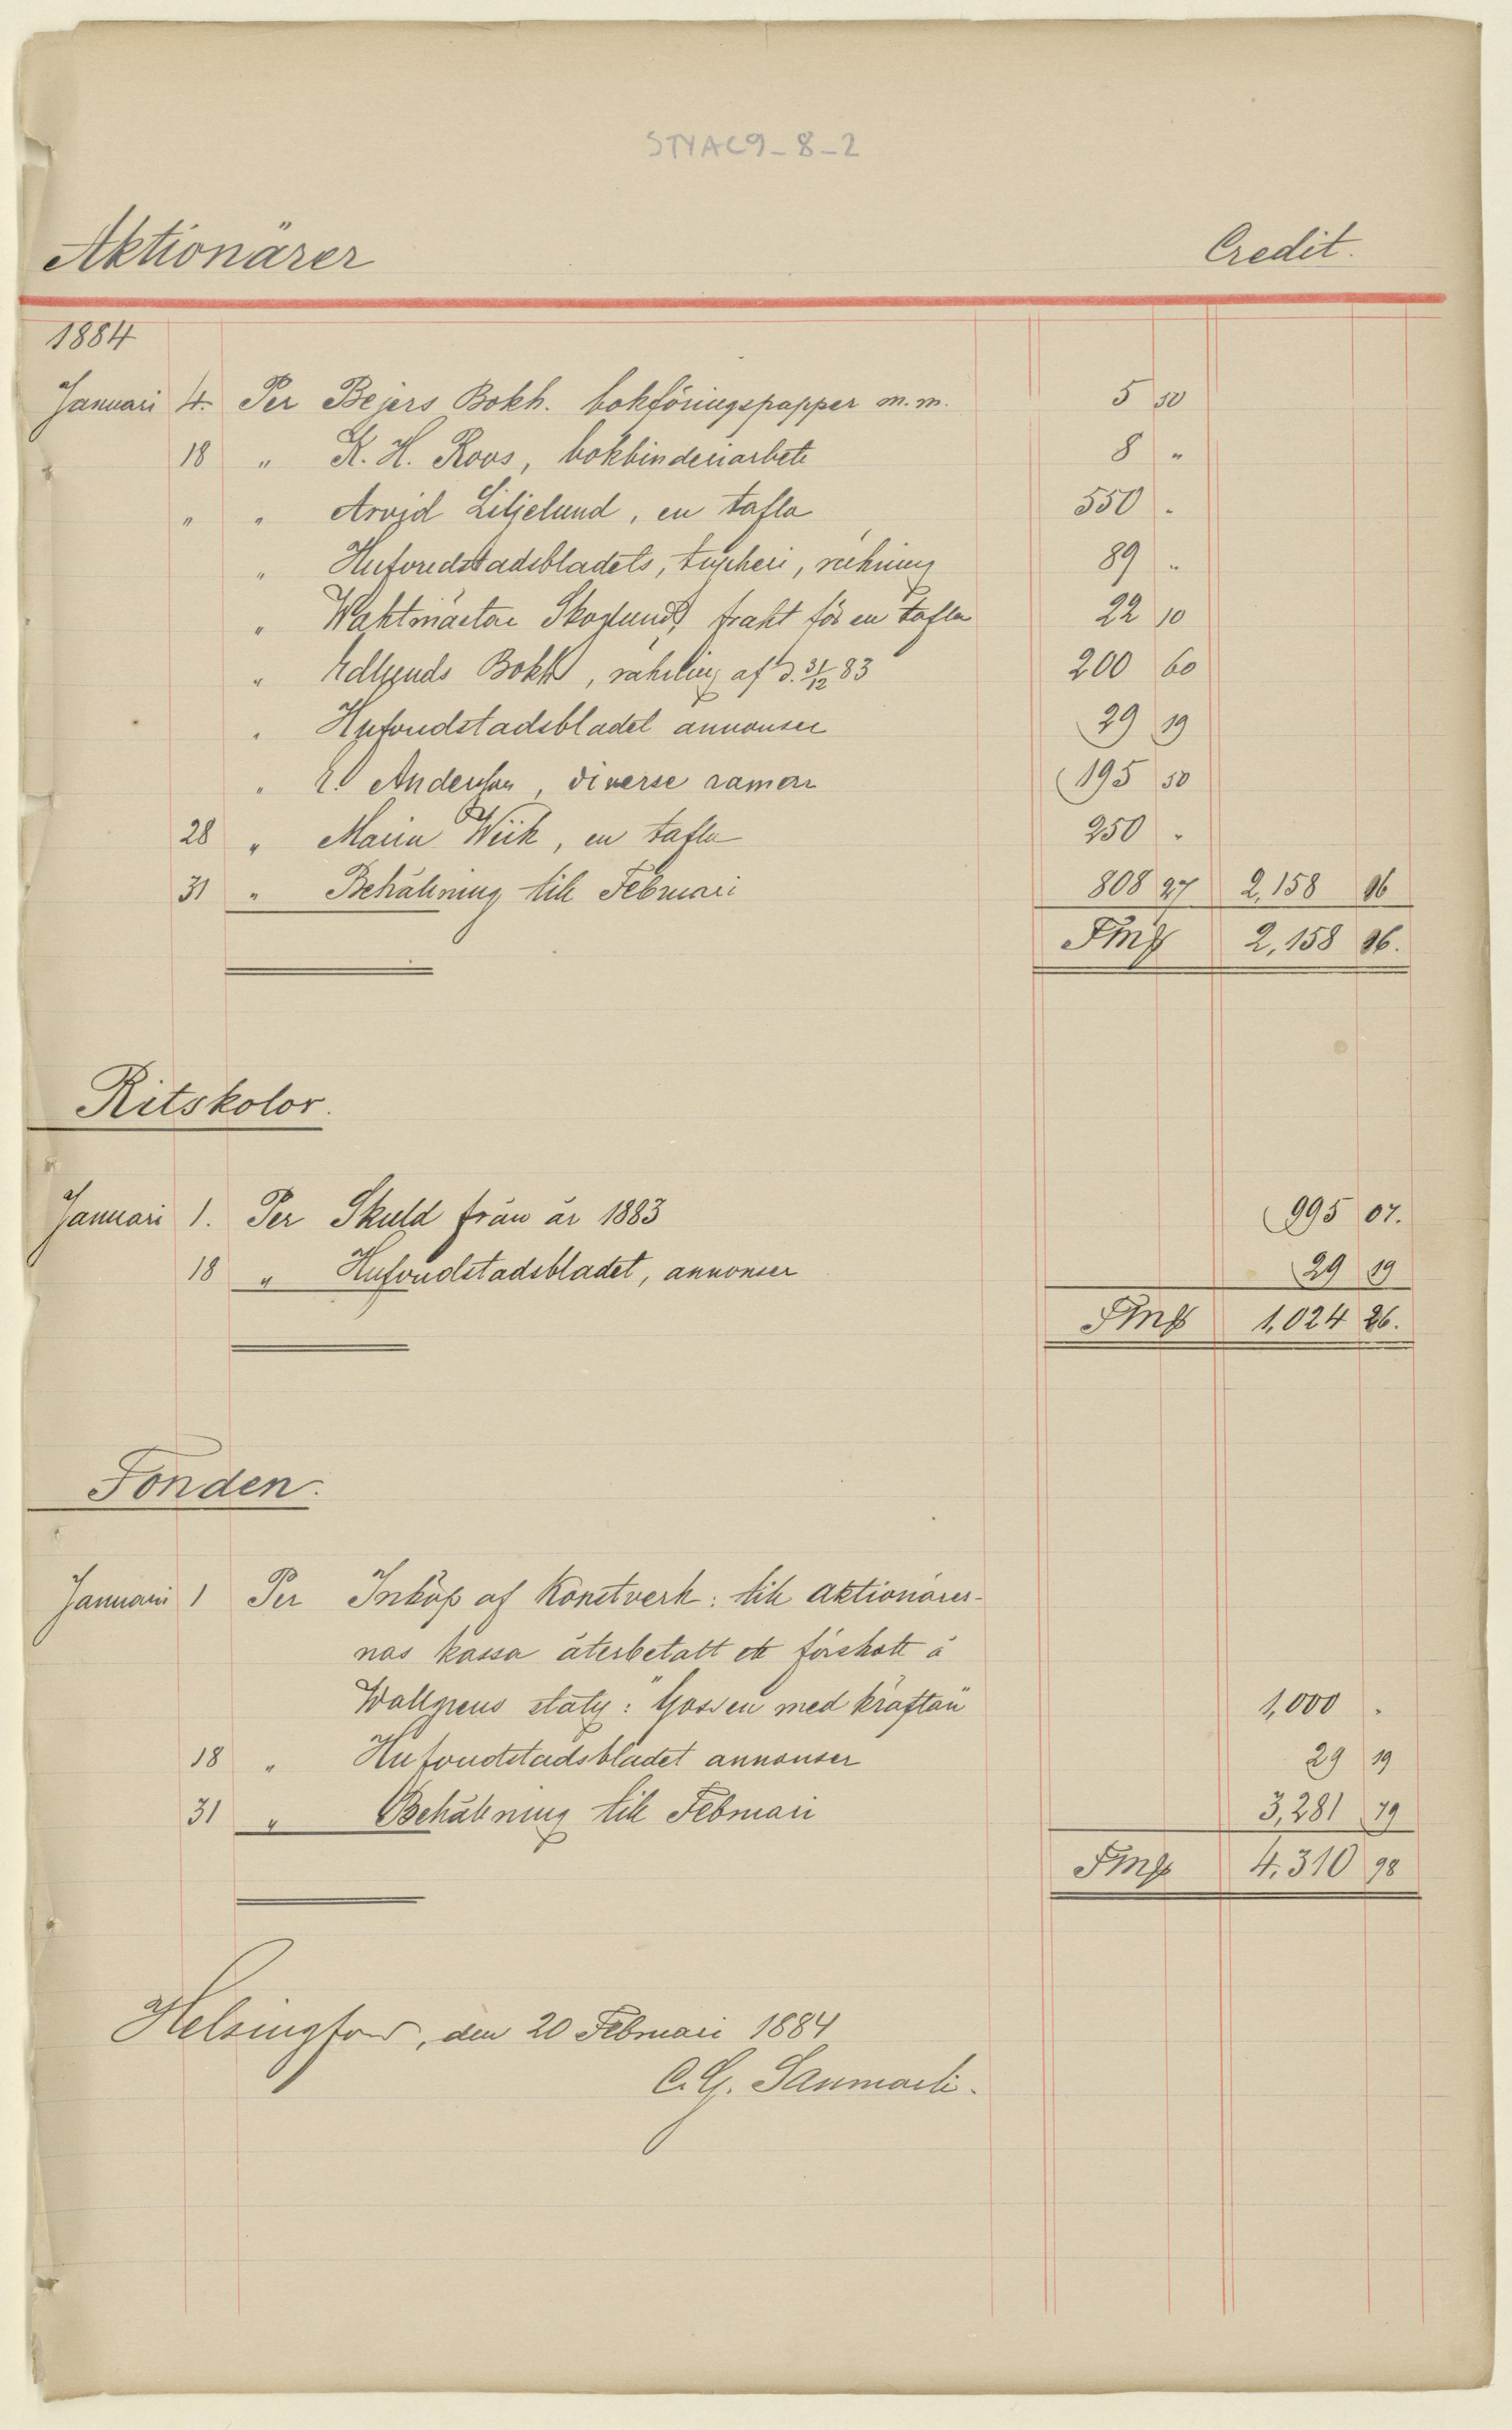 STYAC9_8_2
Aktionärer Credit.
1884
Januari 4. Per Bejers Bokh. bokföringspapper m.m. 5 50
18 " K. H. Roos, bokbinderiarbete 8 "
" " Arvid Liljelund, en tafla 550 .
" Hufvudstadsbladets, tryckeri, räkning 89 "
" Waktmästar Skoglund, frakt för en tafla 22 10
" Edlunds Bokh, räkning af d. 31/12 83 200 60
" Hufvudstadsbladet annonser 29 19
" Anderson, diverse ramar 195 50
28 " Maria Wiik, en tafla 250 "
31 " Behållning till Februari 808 27 2,158 16
Fmk 2,158 16.
Ritskolor.
Januari 1. Per Skuld från år 1883 995 07.
18 " Hufvudstadsbladet, annonser 29 19
Fmk 1,024 26.
Fonden.
Januari 1 Per Inköp af Konstverk: till aktionärer-
nas kassa återbetalt ett förskott å
Wallgrens staty: "Gossen med kräftan" 1,000 .
18 " Hufvudstadsbladet annonser 29 19
31 " Behållning till Februari 3,281 79
Fmk 4,310 98
Helsingfors, den 20 Februari 1884
C. G. Sanmark.